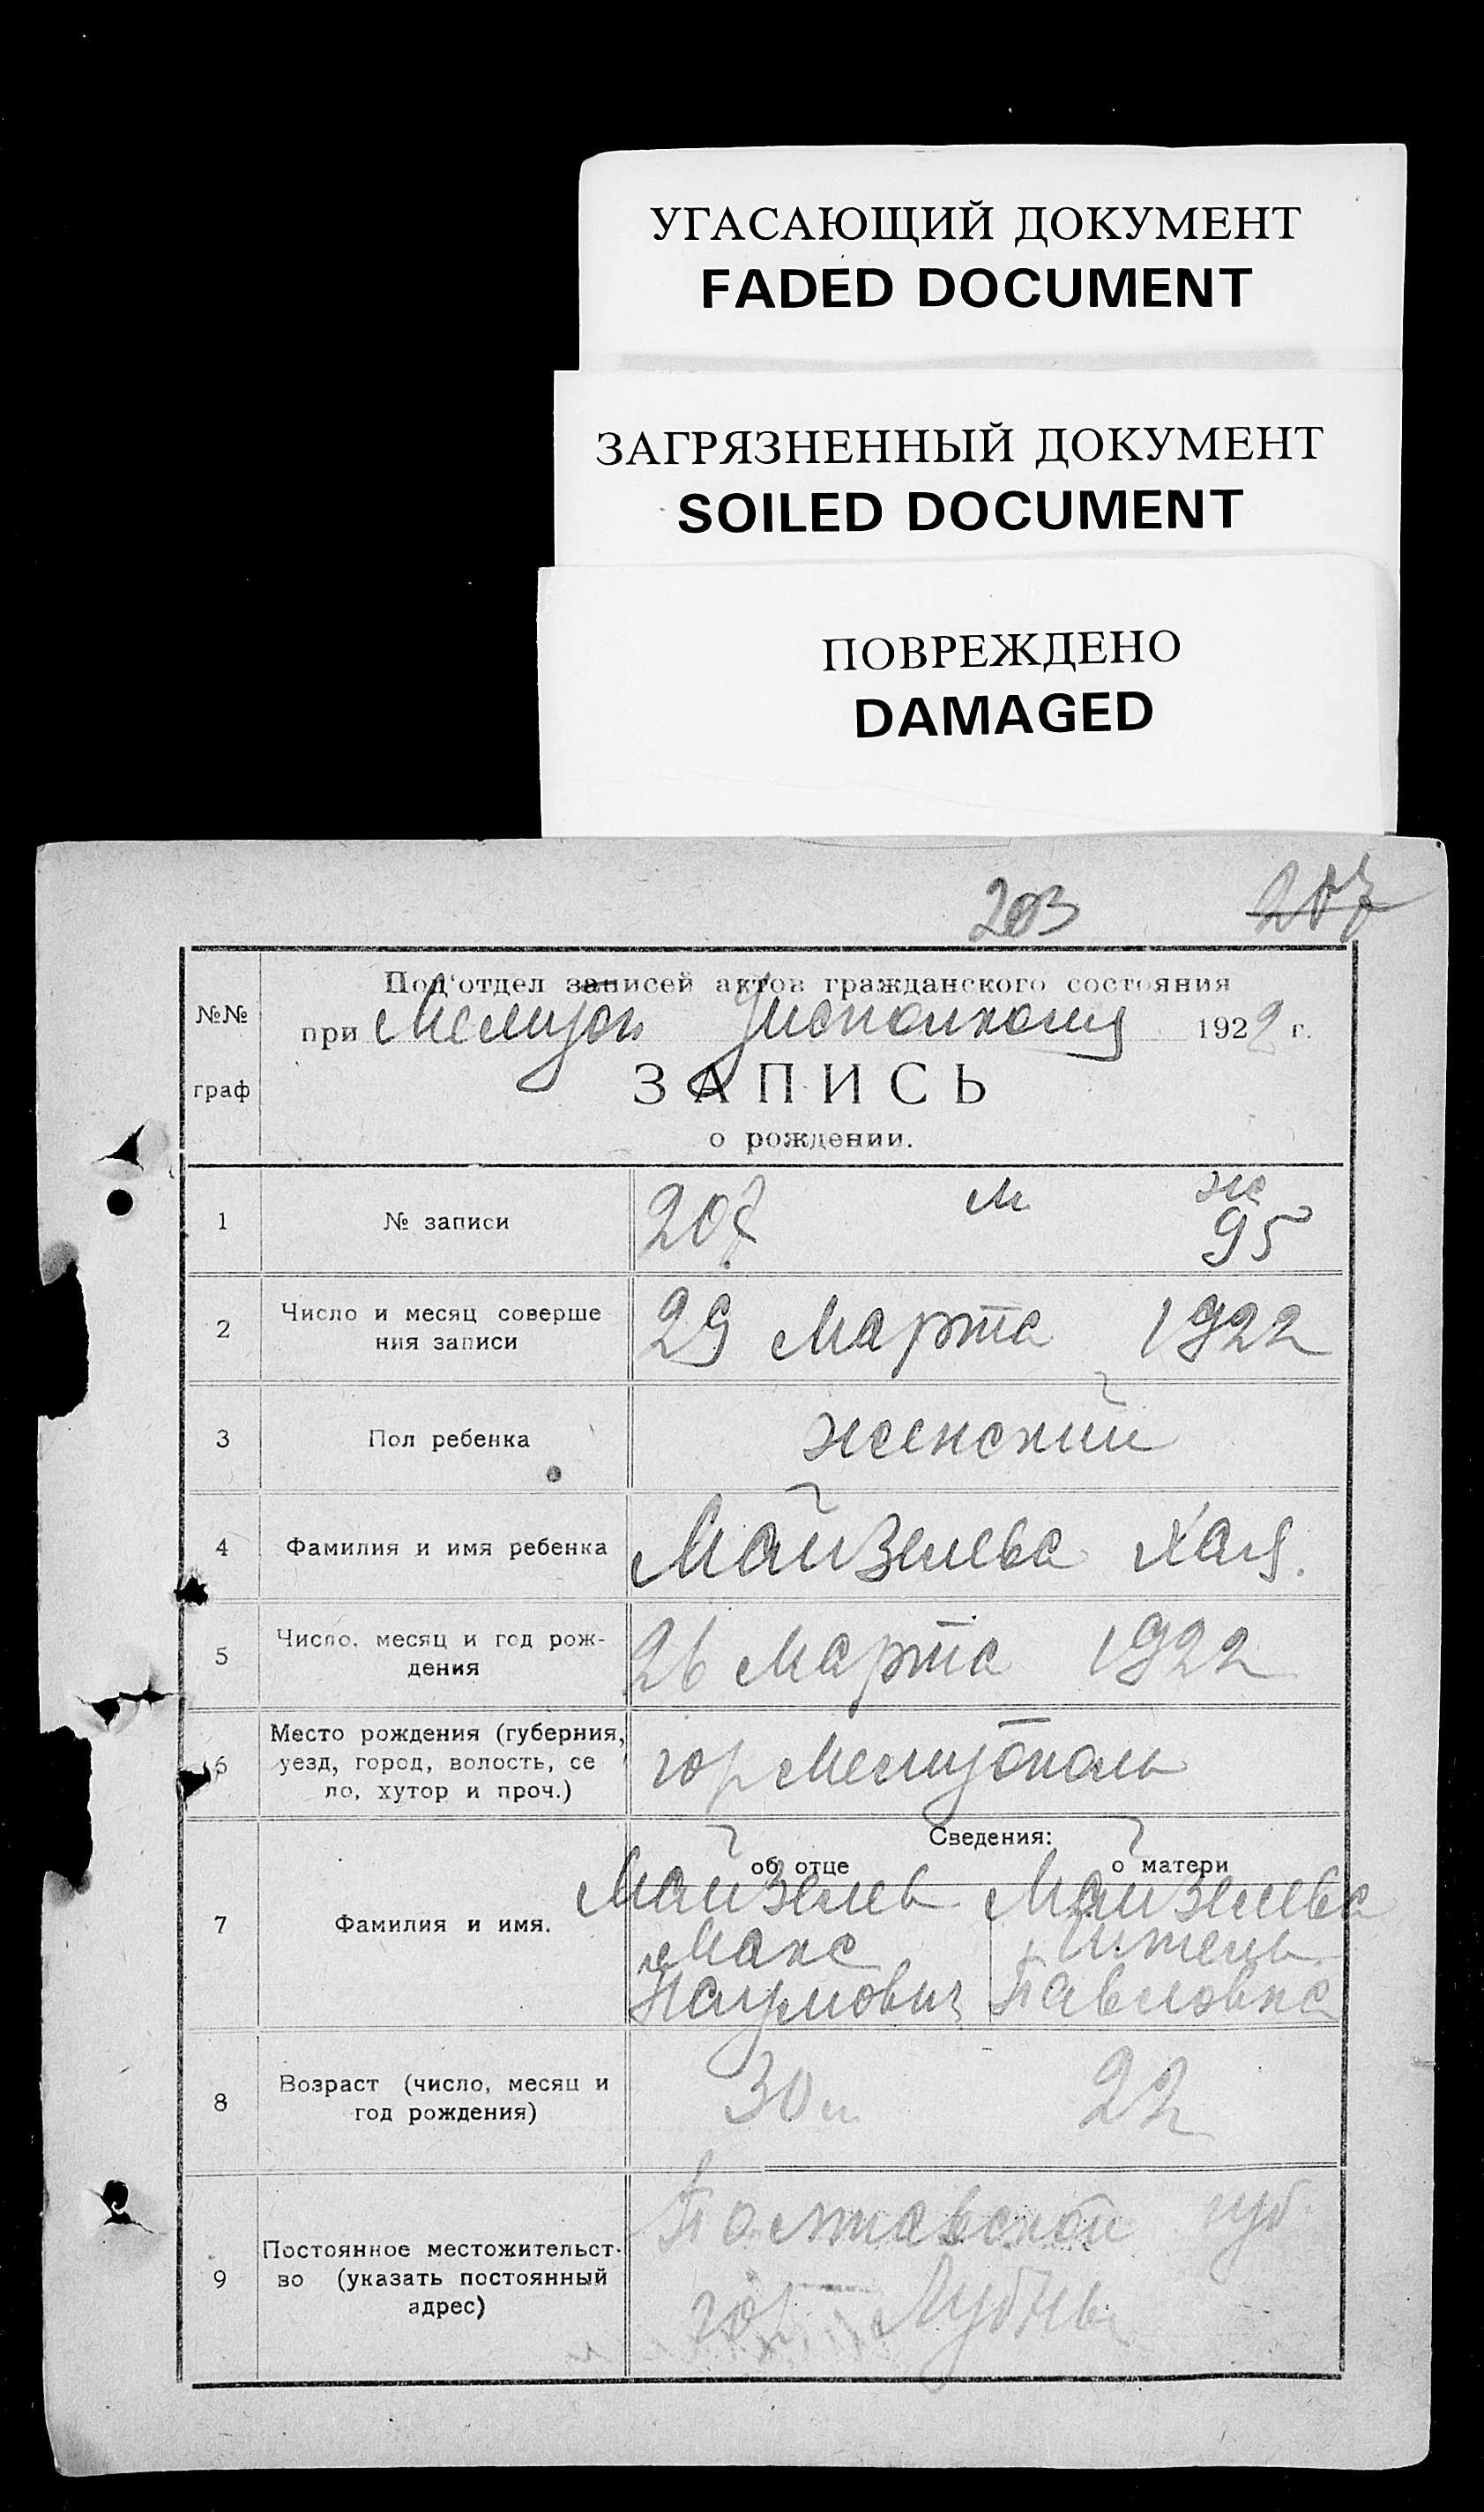 УГАСАЮЩИЙ ДОКУМЕНТ
FADED DOCUMENT
ЗАГРЯЗНЕННЫЙ ДОКУМЕНТ
SOILED DOCUMENT
ПОВРЕЖДЕНО
DAMAGED
203 207
Под'отдел записей актов гражданского состояния
№№ при Мелитоп Уисполкома 1922 г.
граф
ЗАПИСЬ
о рождении.
1 № записи 207 м ж
95
2 Число и месяц соверше
ния записи 29 Марта 1922
3 Пол ребенка женский
4 Фамилия и имя ребенка Майзелева Хая.
5 Число, месяц и год рож-
дения 26 Марта 1922
6 Место рождения (губерния,
уезд, город, волость, се
ло, хутор и проч.) гор Мелитополь
Сведения:
об отце о матери
7 Фамилия и имя. Майзель Майзелева
Макс
Наумович Павловна
8 Возраст (число, месяц и
год рождения) 30 л 22
9 Постоянное местожительст-
во (указать постоянный
адрес) Полтавской губ
гор Лубны